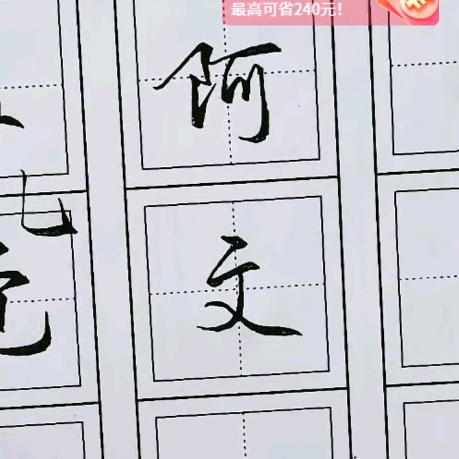 最高可省240元！
阿
文